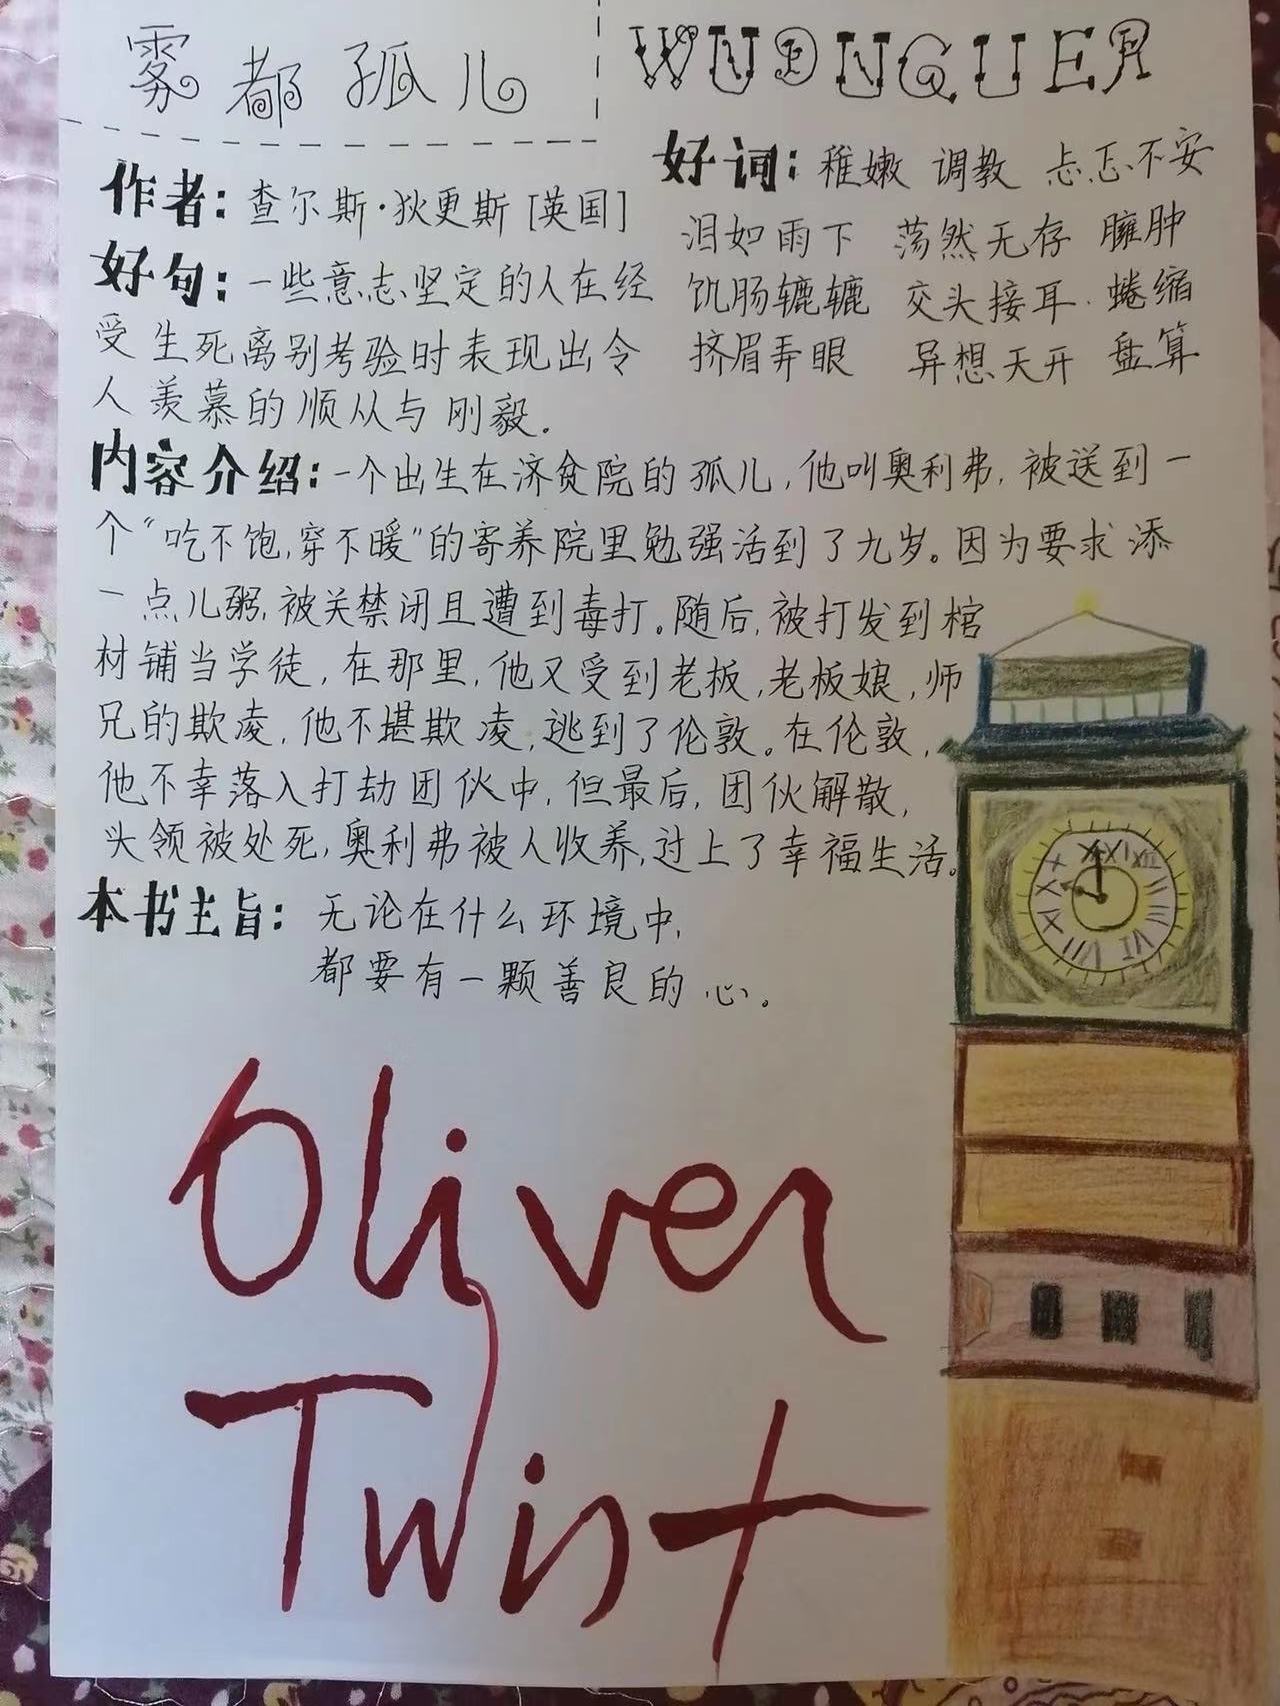 雾都孤儿
WUDUGUER
作者：查尔斯·狄更斯[英国]
好句：一些意志坚定的人在经
受生死离别考验时表现出令
人羡慕的顺从与刚毅.
好词：稚嫩 调教 忐忑不安
泪如雨下 荡然无存 臃肿
饥肠辘辘 交头接耳. 蜷缩
挤眉弄眼 异想天开 盘算
内容介绍：一个出生在济贫院的孤儿,他叫奥利弗,被送到一
个“吃不饱,穿不暖”的寄养院里勉强活到了九岁。因为要求添
一点儿粥,被关禁闭且遭到毒打。随后,被打发到棺
材铺当学徒,在那里,他又受到老板,老板娘,师
兄的欺凌,他不堪欺凌,逃到了伦敦。在伦敦,
他不幸落入打劫团伙中,但最后,团伙解散,
头领被处死,奥利弗被人收养,过上了幸福生活。
本书主旨：无论在什么环境中,
都要有一颗善良的心。
Oliver
Twist